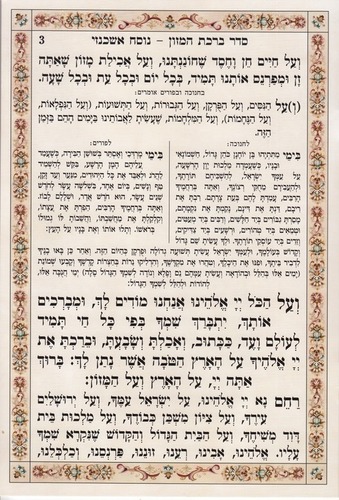 סדר ברכת המזון – נוסח אשכנזי 3
וְעַל חַיִּים חֵן וָחֶסֶד שֶׁחוֹנַנְתָּנוּ, וְעַל אֲכִילַת מָזוֹן שָׁאַתָּה
זָן וּמְפַרְנֵס אוֹתָנוּ תָּמִיד, בְּכָל יוֹם וּבְכָל עֵת וּבְכָל שָׁעָה.
בחנוכה ובפורים אומרים:
(וְ)עַל הַנִּסִּים, וְעַל הַפֻּרְקָן, וְעַל הַגְּבוּרוֹת, וְעַל הַתְּשׁוּעוֹת, (וְעַל הַנִּפְלָאוֹת,
וְעַל הַנֶּחָמוֹת), וְעַל הַמִּלְחָמוֹת, שֶׁעָשִׂיתָ לַאֲבוֹתֵינוּ בַּיָּמִים הָהֵם בַּזְּמַן
הַזֶּה.
לחנוכה:
בִּימֵי מַתִּתְיָהוּ בֶּן יוֹחָנָן כֹּהֵן גָּדוֹל, חַשְׁמוֹנָאִי
וּבָנָיו, כְּשֶׁעָמְדָה מַלְכוּת יָוָן הָרְשָׁעָה
עַל עַמְּךָ יִשְׂרָאֵל, לְהַשְׁכִּיחָם תּוֹרָתֶךָ,
וּלְהַעֲבִירָם מֵחֻקֵּי רְצוֹנֶךָ, וְאַתָּה בְּרַחֲמֶיךָ
הָרַבִּים עָמַדְתָּ לָהֶם בְּעֵת צָרָתָם, רַבְתָּ אֶת
רִיבָם, דַּנְתָּ אֶת דִּינָם, נָקַמְתָּ אֶת נִקְמָתָם,
מָסַרְתָּ גִבּוֹרִים בְּיַד חַלָּשִׁים, וְרַבִּים בְּיַד מְעַטִּים,
וּטְמֵאִים בְּיַד טְהוֹרִים, וּרְשָׁעִים בְּיַד צַדִּיקִים,
וְזֵדִים בְּיַד עוֹסְקֵי תוֹרָתֶךָ. וּלְךָ עָשִׂיתָ שֵׁם גָּדוֹל
לפורים:
בִּימֵי מָרְדְּכַי וְאֶסְתֵּר בְּשׁוּשַׁן הַבִּירָה, כְּשֶׁעָמַד
עֲלֵיהֶם הָמָן הָרָשָׁע, בִּקֵּשׁ לְהַשְׁמִיד
לַהֲרֹג וּלְאַבֵּד אֶת כָּל הַיְּהוּדִים, מִנַּעַר וְעַד זָקֵן,
טַף וְנָשִׁים, בְּיוֹם אֶחָד, בִּשְׁלוֹשָׁה עָשָׂר לְחֹדֶשׁ
שְׁנֵים עָשָׂר, הוּא חֹדֶשׁ אֲדָר, וּשְׁלָלָם לָבוֹז.
וְאַתָּה בְּרַחֲמֶיךָ הָרַבִּים, הֵפַרְתָּ אֶת עֲצָתוֹ,
וְקִלְקַלְתָּ אֶת מַחֲשַׁבְתּוֹ, וַהֲשֵׁבוֹתָ לּוֹ גְּמוּלוֹ
בְרֹאשׁוֹ. וְתָלוּ אוֹתוֹ וְאֶת בָּנָיו עַל הָעֵץ:
וְקָדוֹשׁ בְּעוֹלָמֶךָ, וּלְעַמְּךָ יִשְׂרָאֵל עָשִׂיתָ תְּשׁוּעָה גְדוֹלָה וּפֻרְקָן כְּהַיּוֹם הַזֶּה. וְאַחַר כֵּן בָּאוּ בָנֶיךָ
לִדְבִיר בֵּיתֶךָ, וּפִנּוּ אֶת הֵיכָלֶךָ, וְטִהֲרוּ אֶת מִקְדָּשֶׁךָ, וְהִדְלִיקוּ נֵרוֹת בְּחַצְרוֹת קָדְשֶׁךָ וְקָבְעוּ שְׁמוֹנַת
יְמֵי חֲנֻכָּה אֵלּוּ,
לְהוֹדוֹת וּלְהַלֵּל לְשִׁמְךָ הַגָּדוֹל:
וְעַל הַכֹּל יְיָ אֱלֹהֵינוּ אֲנַחְנוּ מוֹדִים לָךְ, וּמְבָרְכִים
אוֹתָךְ, יִתְבָּרַךְ שִׁמְךָ בְּפִי כָּל חַי תָּמִיד
לְעוֹלָם וָעֶד, כַּכָּתוּב, וְאָכַלְתָּ וְשָׂבָעְתָּ, וּבֵרַכְתָּ אֶת
יְיָ אֱלֹהֶיךָ עַל הָאָרֶץ הַטֹּבָה אֲשֶׁר נָתַן לָךְ: בָּרוּךְ
אַתָּה יְיָ, עַל הָאָרֶץ וְעַל הַמָּזוֹן:
רַחֵם נָא יְיָ אֱלֹהֵינוּ, עַל יִשְׂרָאֵל עַמֶּךָ, וְעַל יְרוּשָׁלַיִם
עִירֶךָ, וְעַל צִיּוֹן מִשְׁכַּן כְּבוֹדֶךָ, וְעַל מַלְכוּת בֵּית
דָּוִד מְשִׁיחֶךָ, וְעַל הַבַּיִת הַגָּדוֹל וְהַקָּדוֹשׁ שֶׁנִּקְרָא שִׁמְךָ
עָלָיו. אֱלֹהֵינוּ, אָבִינוּ, רְעֵנוּ, זוּנֵנוּ, פַּרְנְסֵנוּ, וְכַלְכְּלֵנוּ,